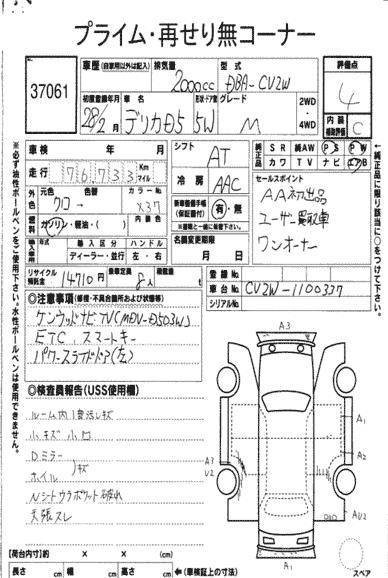 プライム・再せり無コーナー
37061
車歴(自家用以外は記入) 排気量 型式
2000cc DBA-CV2W
初度登録年月 車名 形状・ドア数 グレード 2WD・4WD
28/2月 デリカD5 5W M
評価点
4
内装補助評価 C
車検 年 月
走行 76733 Km マイル
シフト AT
純正品 SR 純AW PS PW
カワ TV ナビ エアB
外色 元色 色替 カラーNo.
クロ → X37
冷房 AAC
セールスポイント
AA初出品
ユーザー買取車
ワンオーナー
燃料 ガソリン・軽油・( ) 内装色
新車整備手帳(保証書付) 有・無
輸入車用 年式 輸入区分 ハンドル
ディーラー・並行 左・右
名義変更期限
月 日
リサイクル預託金 14710円 乗車定員 8人 積載量 t
登録No.
車台No. CV2W-1100337
シリアルNo.
◎注意事項(修復・不具合箇所および状態等)
ケンウッドナビTV(MDV-D503W)
ETC、スマートキー
パワースライドドア(左)
◎検査員報告(USS使用欄)
ルーム内1, 普汚しキズ
小キズ 小凹
Dミラー
ホイル キズ
Nシートウラポケット破れ
天張スレ
【荷台内寸】約 × × (cm)
長さ cm 幅 cm 高さ cm ←(車検証上の寸法)
※必ず油性ボールペンをご使用下さい。水性ボールペンは使用できません。
←純正品に限り該当に○をつけて下さい。
A3
A1
A2
A3
U2
AU2
A1
スペア